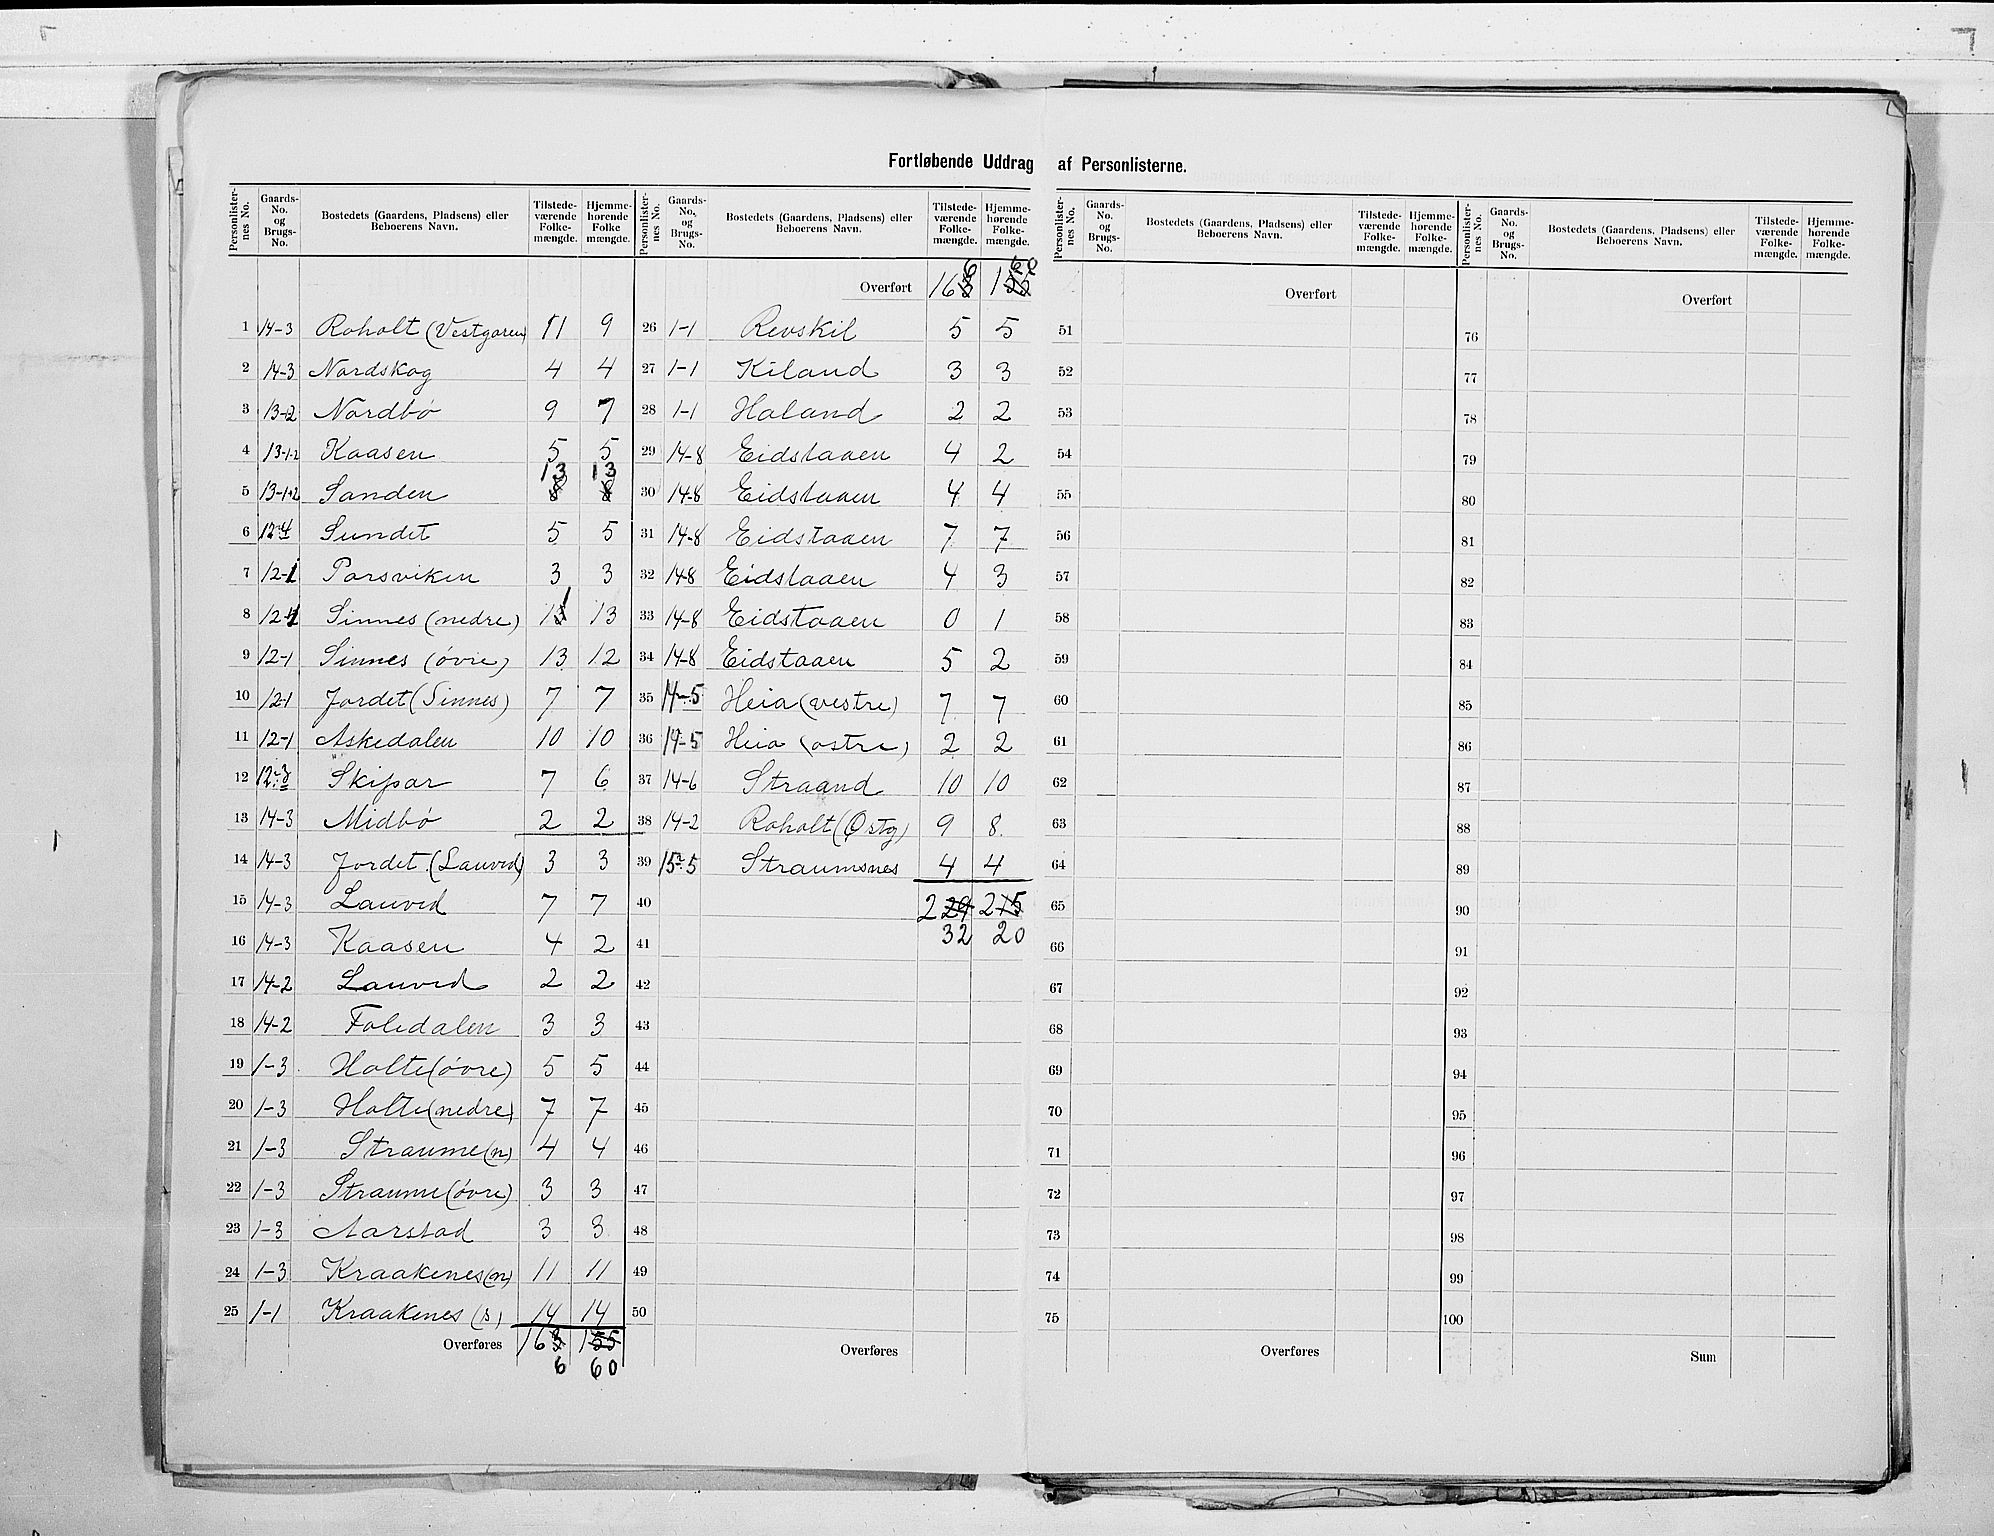 Fortløbende Uddrag af Personlisterne.
Personlister-nes No. Gaards-No. og Brugs-No. Bostedets (Gaardens, Pladsens) eller Beboerens Navn. Tilstede-værende Folke-mængde. Hjemme-hørende Folke mængde.
1 14-3 Roholt (Vestgaren) 11 9
2 14-3 Nordskog 4 4
3 13-12 Nordbö 9 7
4 13-1-2 Kaasen 5 5
5 13-1+2 Sanden 13 13
6 12-4 Sundet 5 5
7 12-1 Porsviken 3 3
8 12-1 Sinnes (nedre) 11 13
9 12-1 Sinnes (övre) 13 12
10 12-1 Jordet (Sinnes) 7 7
11 12-1 Askedalen 10 10
12 12-3 Skipar 7 6
13 14-3 Midbö 2 2
14 14-3 Jordet (Lauvid) 3 3
15 14-3 Lauvid 7 7
16 14-3 Kaasen 4 2
17 14-2 Lauvid 2 2
18 14-2 Foledalen 3 3
19 1-3 Holte (övre) 5 5
20 1-3 Holte (nedre) 7 7
21 1-3 Straume (n) 4 4
22 1-3 Straume (övre) 3 3
23 1-3 Aarstad 3 3
24 1-3 Kraakenes (n) 11 11
25 1-1 Kraakenes (s) 14 14
Overføres 163 155
6 60
Personlister-nes No. Gaards-No. og Brugs-No. Bostedets (Gaardens, Pladsens) eller Beboerens Navn. Tilstede-værende Folke-mængde. Hjemme-hørende Folke-mængde.
6 60
Overført 163 155
26 1-1 Revskil 5 5
27 1-1 Kiland 3 3
28 1-1 Haland 2 2
29 14-8 Eidstaaen 4 2
30 14-8 Eidstaaen 4 4
31 14-8 Eidstaaen 7 7
32 14-8 Eidstaaen 4 3
33 14-8 Eidstaaen 0 1
34 14-8 Eidstaaen 5 2
35 14-5 Heia (vestre) 7 7
36 14-5 Heia (ostre) 2 2
37 14-6 Straand 10 10
38 14-2 Roholt (Østg) 9 8
39 15-5 Straumsnes 4 4
40 229 215
41 32 20
42
43
44
45
46
47
48
49
50
Overføres
Personlister-nes No. Gaards-No. og Brugs-No. Bostedets (Gaardens, Pladsens) eller Beboerens Navn. Tilstede-værende Folke-mængde. Hjemme-hørende Folke-mængde.
Overført
51
52
53
54
55
56
57
58
59
60
61
62
63
64
65
66
67
68
69
70
71
72
73
74
75
Overføres
Personlister-nes No. Gaards-No. og Brugs-No. Bostedets (Gaardens, Pladsens) eller Beboerens Navn. Tilstede-værende Folke-mængde. Hjemme-hørende Folke-mængde.
Overført
76
77
78
79
80
81
82
83
84
85
86
87
88
89
90
91
92
93
94
95
96
97
98
99
100
Sum